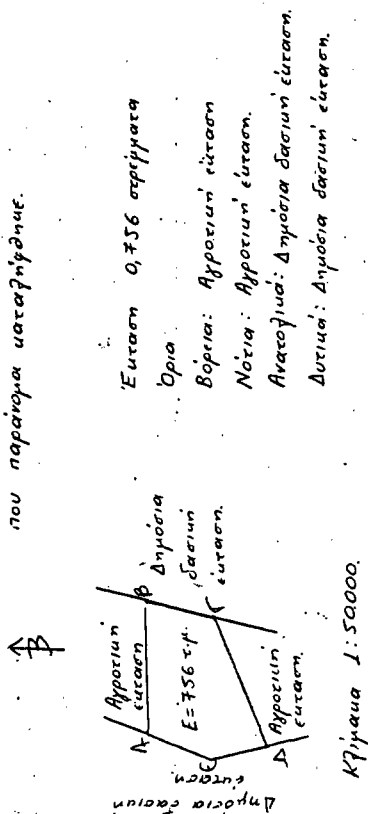 που παράνομα καταλήφθηκε.
Β
Έκταση 0,756 στρέμματα
Όρια
Βόρεια: Αγροτική έκταση
Νότια: Αγροτική έκταση.
Ανατολικά: Δημόσια δασική έκταση.
Δυτικά: Δημόσια δασική έκταση.
Αγροτική
έκταση
Α
Β
Δημόσια
δασική
έκταση.
Ε=756 τ.μ.
Γ
Ε
Δημόσια δασική
έκταση.
D
Αγροτική
έκταση.
Κλίμακα 1:50000.